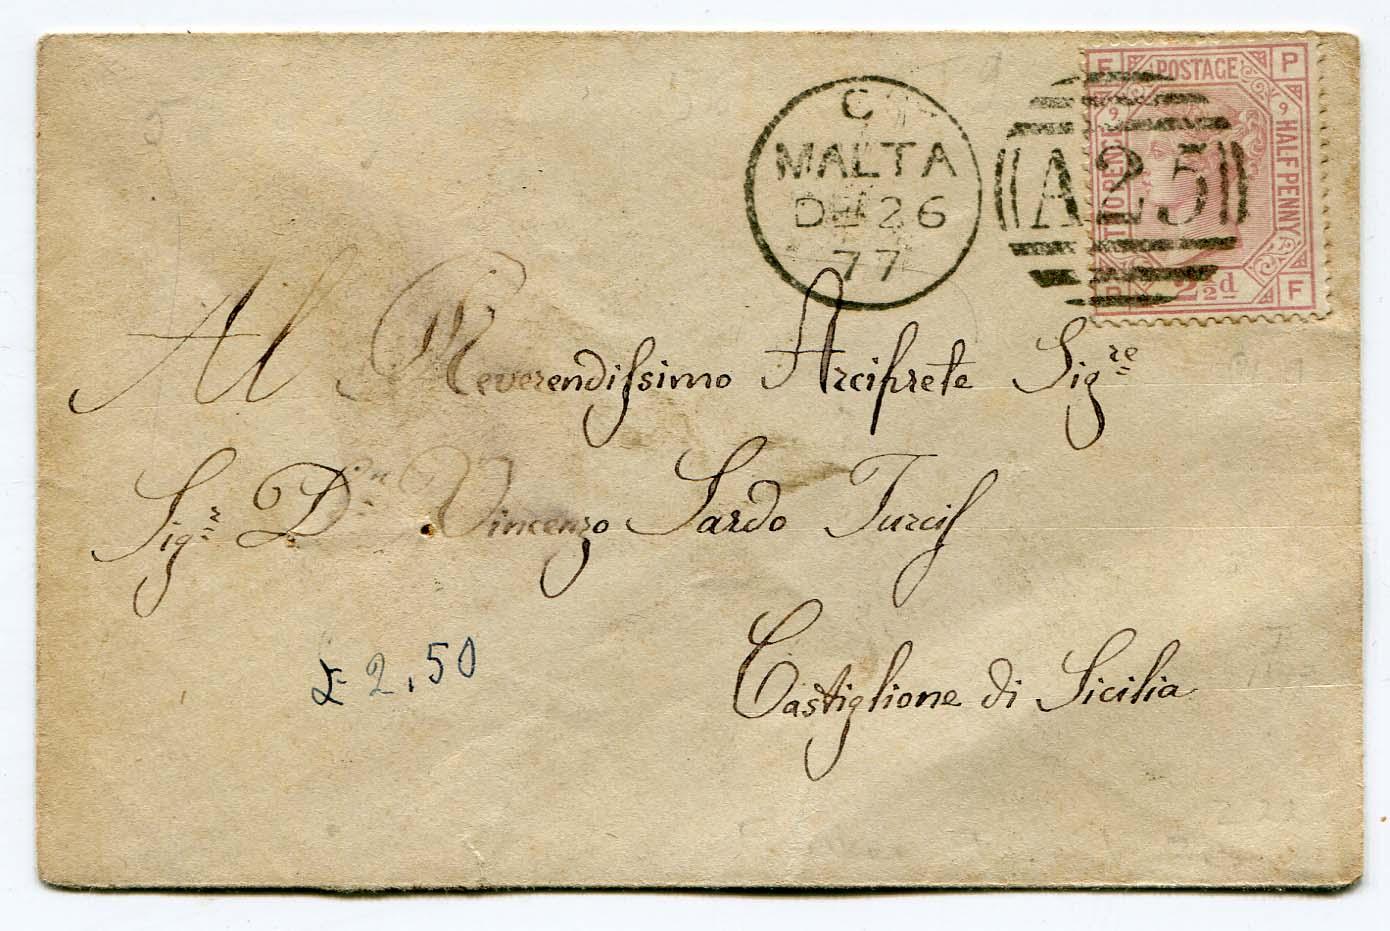 C
MALTA
DE 26
77
A25
F POSTAGE P
TWO PENCE
HALFPENNY
9 9
P 2½d F
Al Reverendissimo Arciprete Sigre
Sigr Dn Vincenzo Sardo
Castiglione di Sicilia
£ 2,50